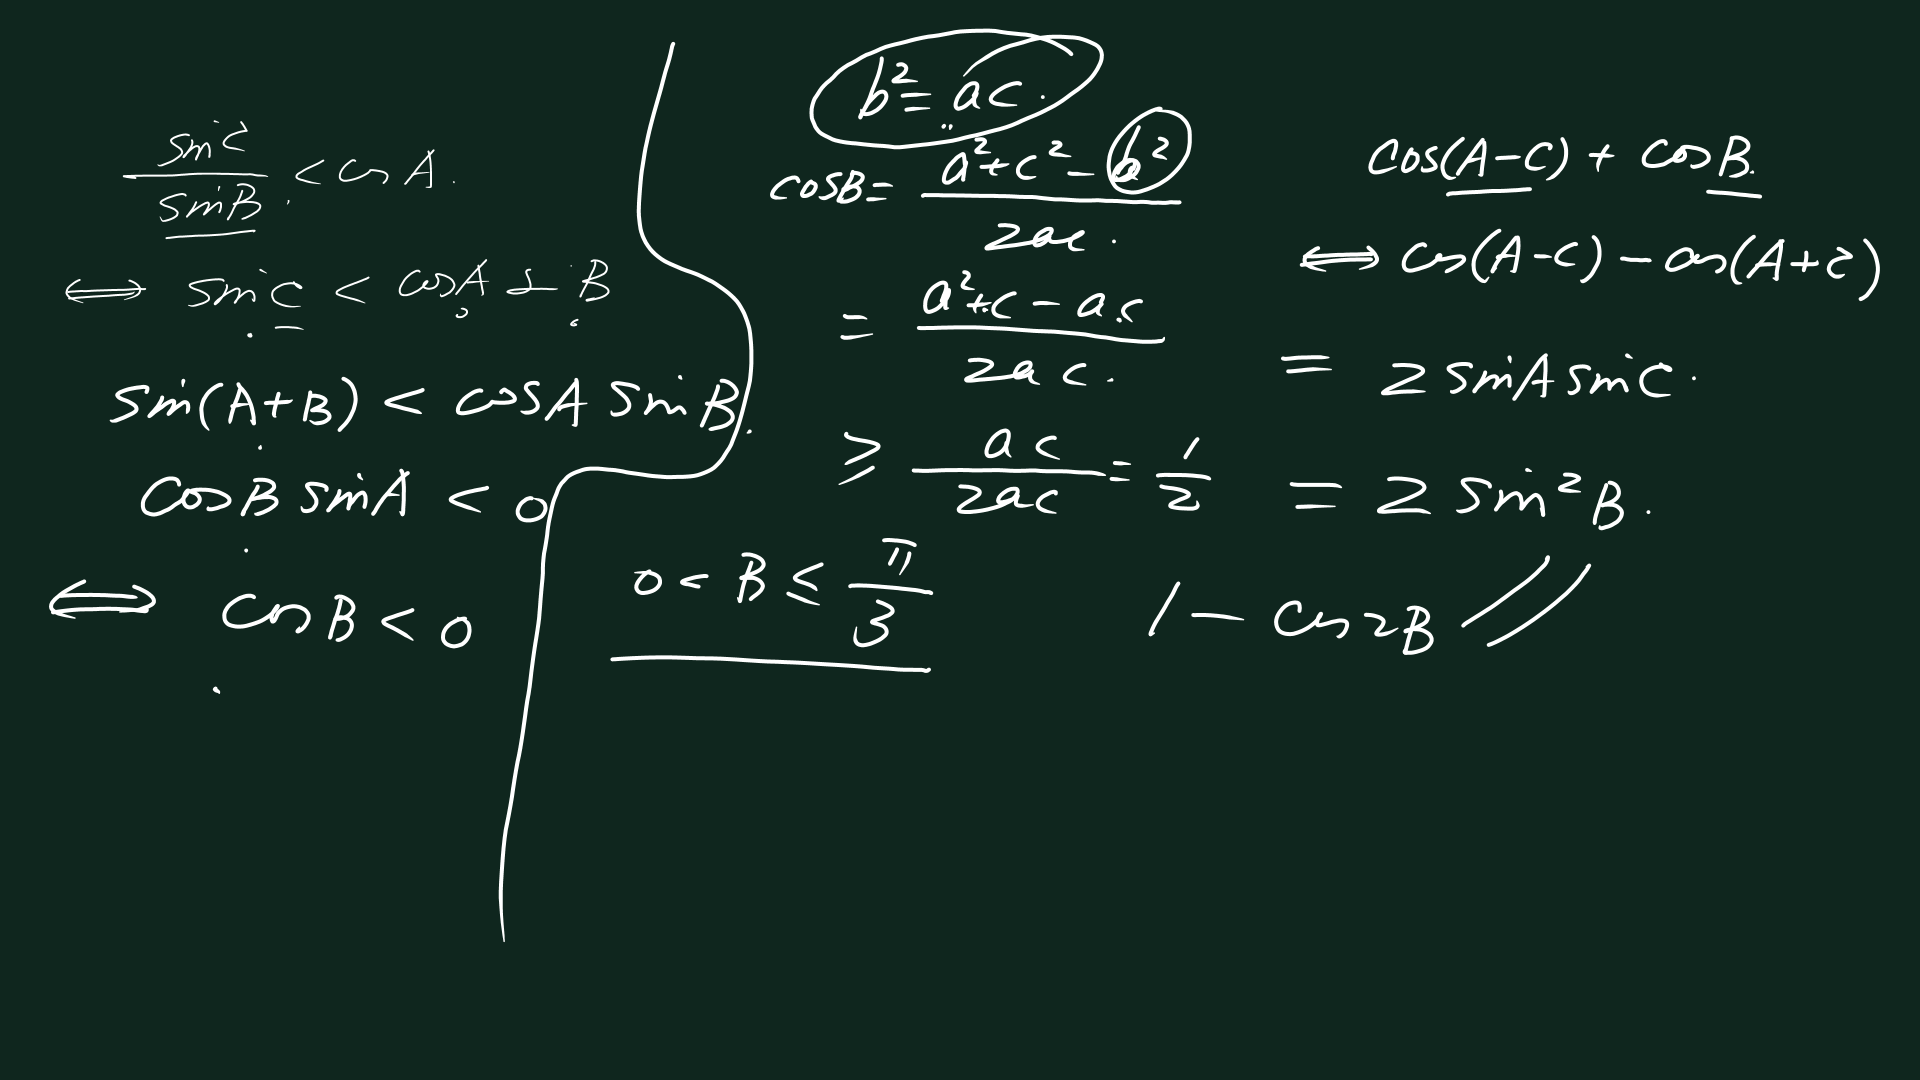 sinC/sinB < cosA.
⟺ sinC < cosA sinB
sin(A+B) < cosA sinB.
cosB sinA < 0
⟺ cosB < 0
b²= ac.
cosB= (a²+c²-b²)/2ac.
= (a²+c-ac)/2ac.
≥ ac/2ac = 1/2
0 < B ≤ π/3
cos(A-C) + cosB.
⟺ cos(A-C) - cos(A+C)
= 2 sinA sinC.
= 2 sin²B.
1 - cos2B